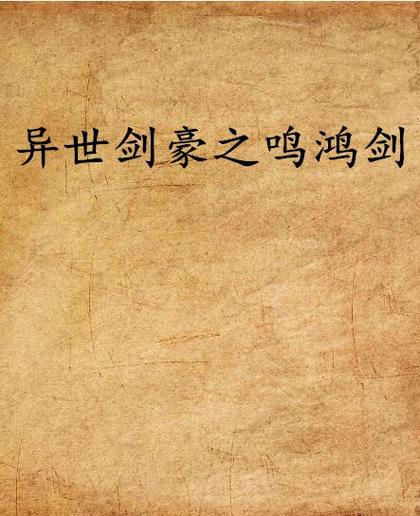 异世剑豪之鸣鸿剑